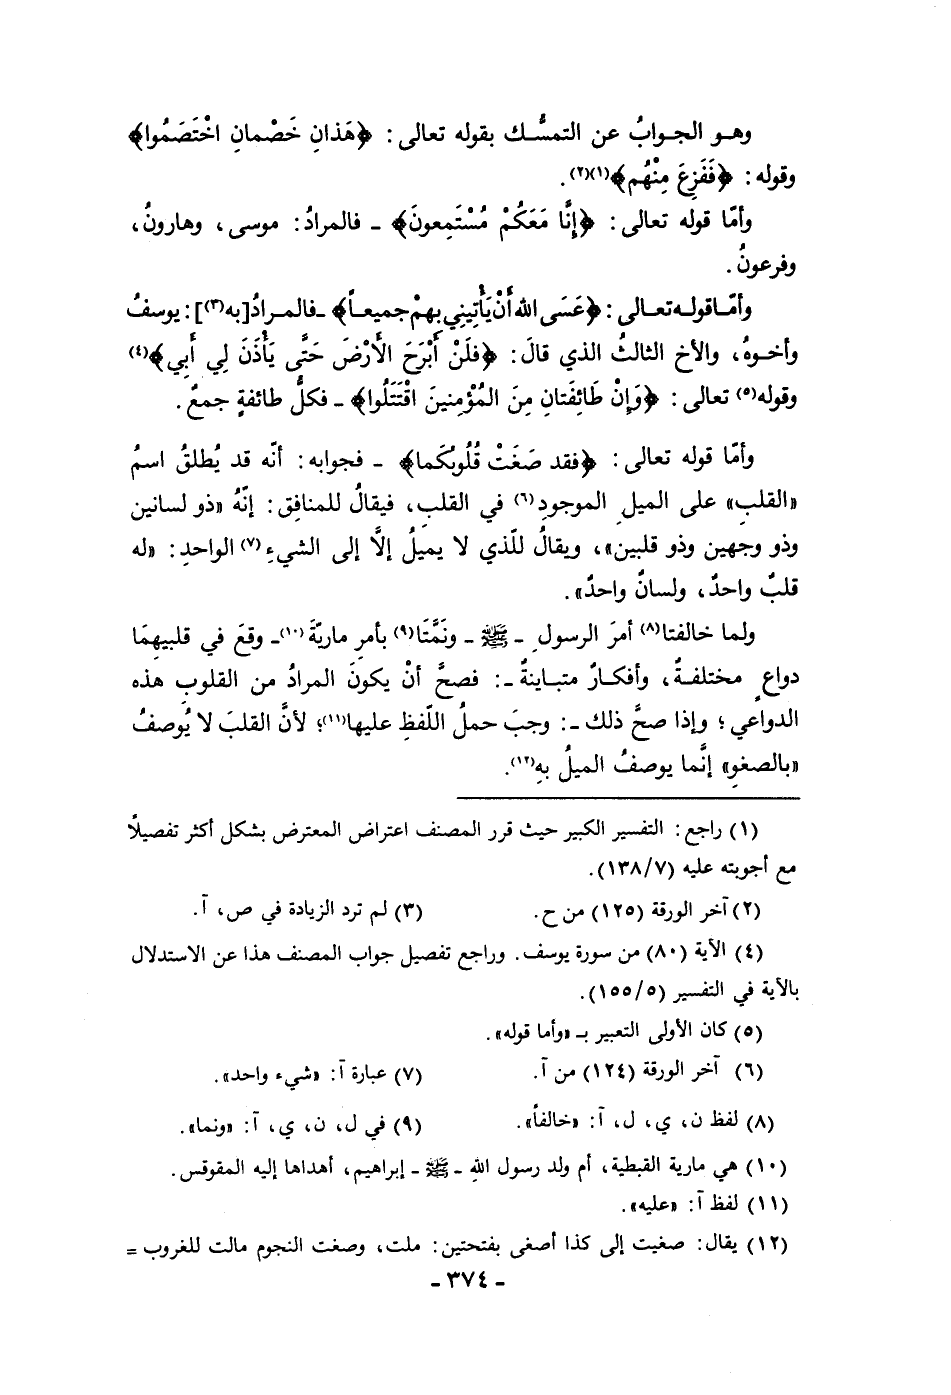 وهو الجوابُ عن التمسُّك بقوله تعالى: ﴿هَذانِ خَصْمانِ اخْتَصَمُوا﴾
وقوله: ﴿فَفَزِعَ مِنْهُم﴾(١)(٢).
وأمّا قوله تعالى: ﴿إِنَّا مَعَكُمْ مُسْتَمِعونَ﴾ ـ فالمرادُ: موسى، وهارونُ،
وفرعونُ.
وأمّا قوله تعالى: ﴿عَسَى الله أَنْ يَأْتِيني بِهِمْ جميعاً﴾ ـ فالمرادُ[به(٣)]: يوسفُ
وأخوهُ، والأخ الثالثُ الذي قالَ: ﴿فلَنْ أَبْرَحَ الأَرْضَ حَتَّى يَأْذَنَ لِي أَبي﴾(٤)
وقوله(٥) تعالى: ﴿وَإِنْ طَائِفَتانِ مِنَ المُؤْمِنينَ اقْتَتَلُوا﴾ ـ فكلُّ طائفةٍ جمعٌ.
وأمّا قوله تعالى: ﴿فقد صَغَتْ قُلُوبُكَما﴾ ـ فجوابه: أنّه قد يُطلقُ اسمُ
«القلبِ» على الميلِ الموجودِ(٦) في القلبِ، فيقالُ للمنافقِ: إنّهُ «ذو لسانين
وذو وجهين وذو قلبين»، ويقالُ للّذي لا يميَلُ إلَّا إلى الشيءِ(٧) الواحدِ: «له
قلبٌ واحدٌ، ولسانٌ واحدٌ».
ولما خالفتا(٨) أمرَ الرسولِ ـ ﷺ ـ ونَمَّتَا(٩) بأمرِ ماريّةَ(١٠)ـ وقعَ في قلبيهِمَا
دواعٍ مختلفةٌ، وأفكارٌ متباينةٌ ـ: فصحَّ أنْ يكونَ المرادُ من القلوبِ هذه
الدواعي؛ وإذا صحَّ ذلك ـ: وجبَ حملُ اللّفظِ عليها(١١)؛ لأنَّ القلبَ لا يُوصفُ
«بالصغوِ» إنَّما يوصفُ الميلُ بهِ(١٢).
(١) راجع: التفسير الكبير حيث قرر المصنف اعتراض المعترض بشكل أكثر تفصيلاً
مع أجوبته عليه (١٣٨/٧).
(٢) آخر الورقة (١٢٥) من ح. (٣) لم ترد الزيادة في ص، آ.
(٤) الآية (٨٠) من سورة يوسف. وراجع تفصيل جواب المصنف هذا عن الاستدلال
بالآية في التفسير (١٥٥/٥).
(٥) كان الأولى التعبير بـ «وأما قوله».
(٦) آخر الورقة (١٢٤) من آ. (٧) عبارة آ: «شيء واحد».
(٨) لفظ ن، ي، ل، آ: «خالفاً». (٩) في ل، ن، ي، آ: «ونما».
(١٠) هي مارية القبطية، أم ولد رسول اللهِ ـ ﷺ ـ إبراهيم، أهداها إليه المقوقس.
(١١) لفظ آ: «عليه».
(١٢) يقال: صغيت إلى كذا أصغى بفتحتين: ملت، وصغت النجوم مالت للغروب =
ـ ٣٧٤ ـ